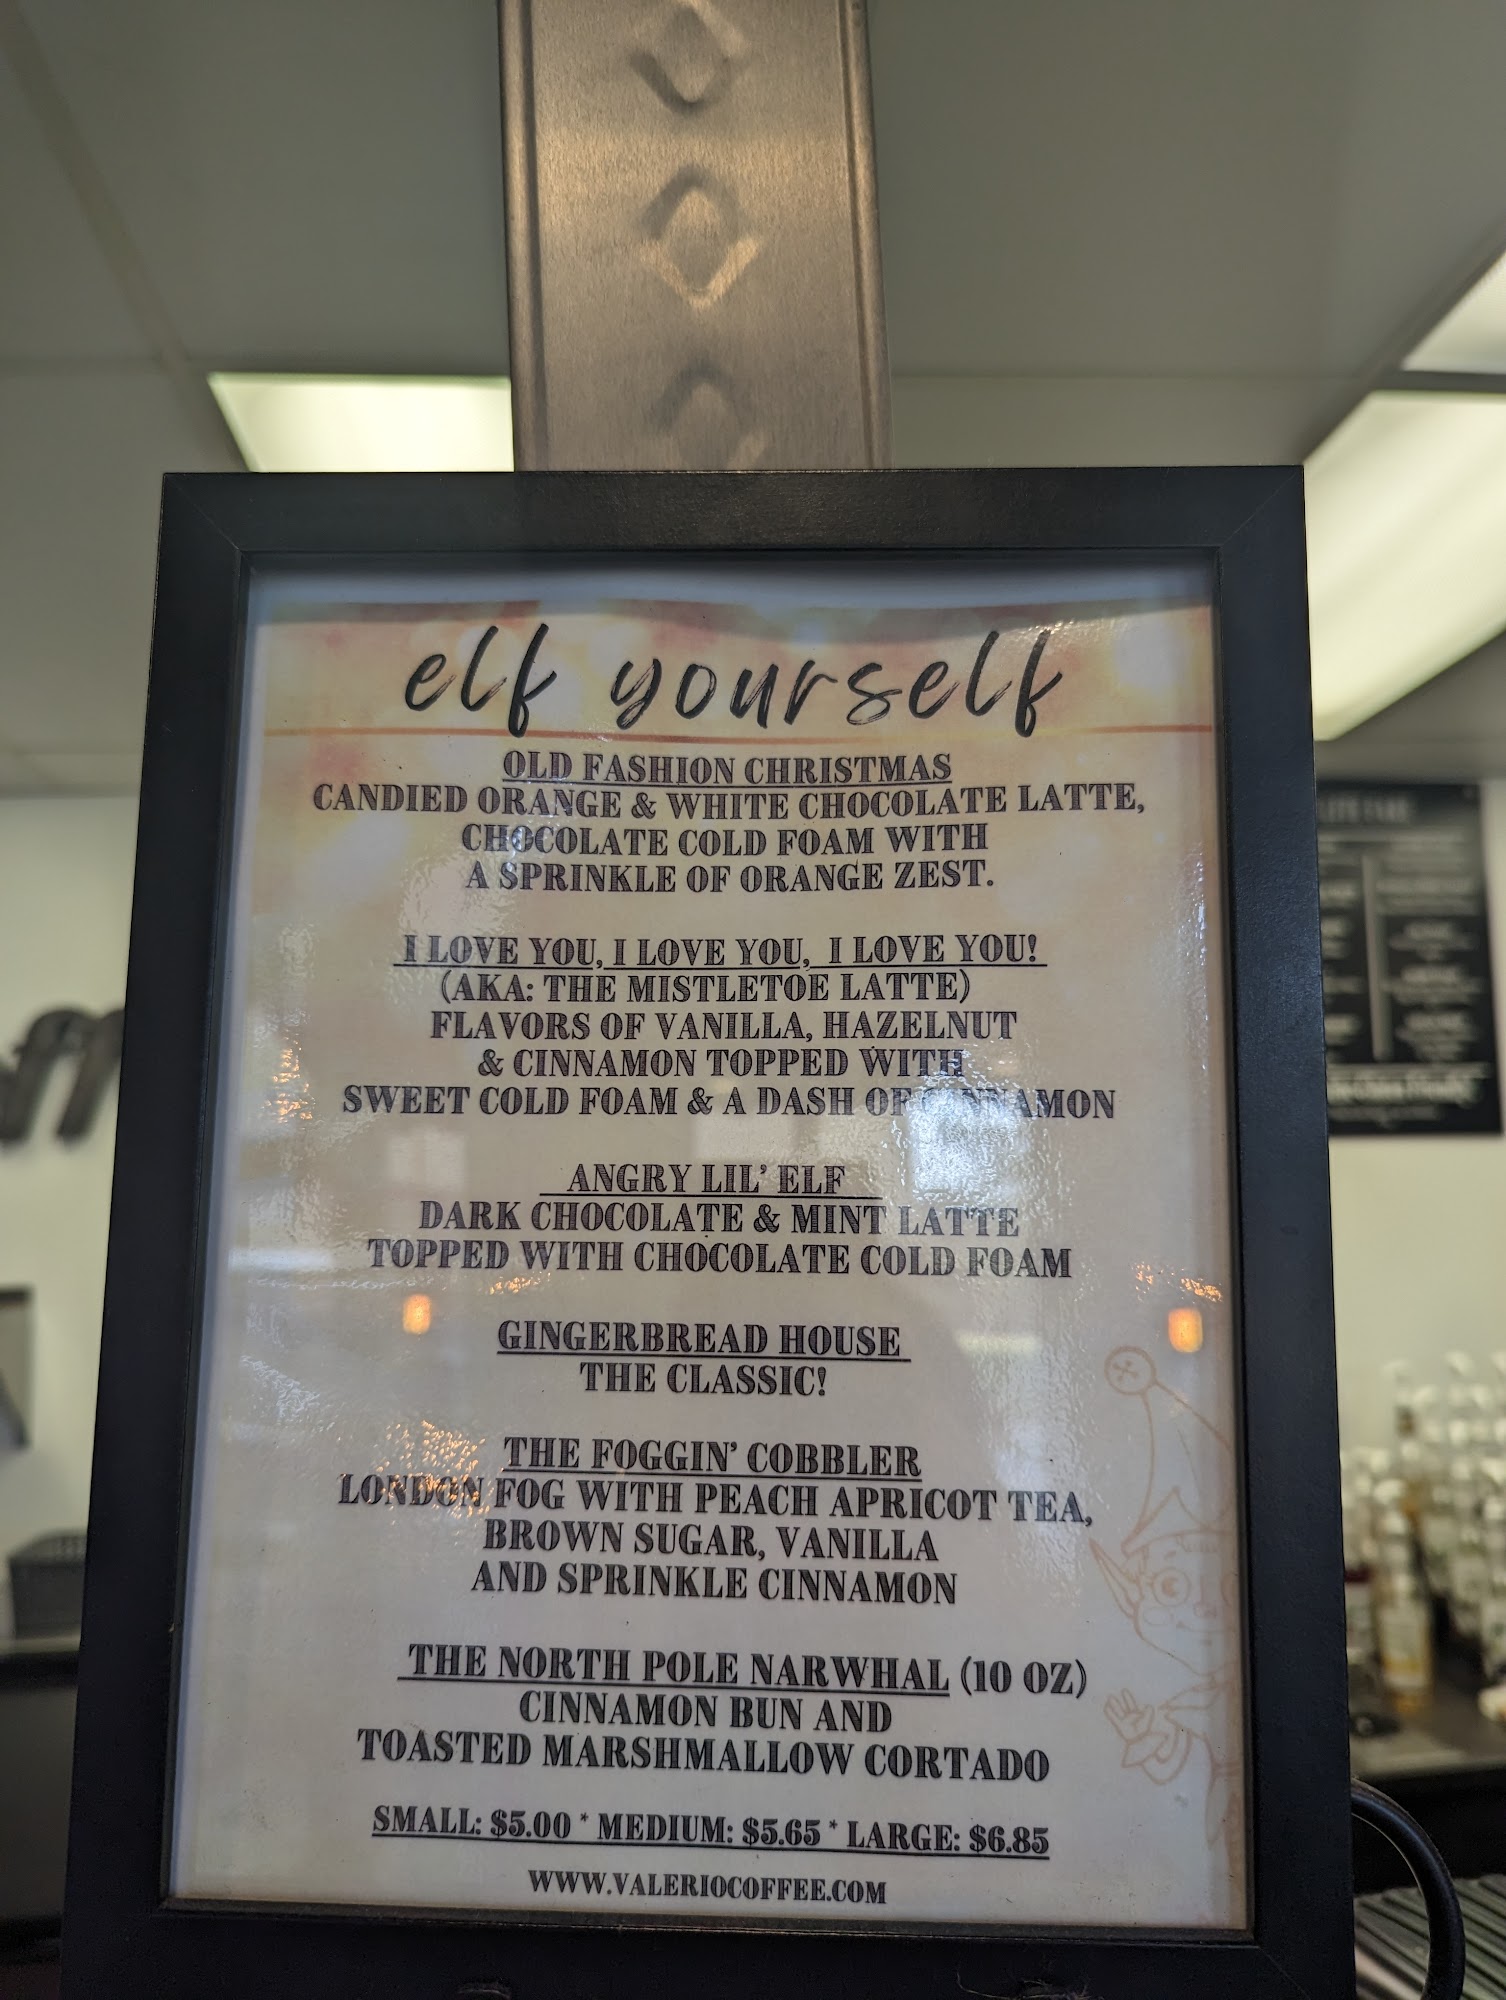 elf yourself
OLD FASHION CHRISTMAS
CANDIED ORANGE & WHITE CHOCOLATE LATTE,
CHOCOLATE COLD FOAM WITH
A SPRINKLE OF ORANGE ZEST.
I LOVE YOU, I LOVE YOU, I LOVE YOU!
(AKA: THE MISTLETOE LATTE)
FLAVORS OF VANILLA, HAZELNUT
& CINNAMON TOPPED WITH
SWEET COLD FOAM & A DASH OF CINNAMON
ANGRY LIL' ELF
DARK CHOCOLATE & MINT LATTE
TOPPED WITH CHOCOLATE COLD FOAM
GINGERBREAD HOUSE
THE CLASSIC!
THE FOGGIN' COBBLER
LONDON FOG WITH PEACH APRICOT TEA,
BROWN SUGAR, VANILLA
AND SPRINKLE CINNAMON
THE NORTH POLE NARWHAL (10 OZ)
CINNAMON BUN AND
TOASTED MARSHMALLOW CORTADO
SMALL: $5.00 * MEDIUM: $5.65 * LARGE: $6.85
WWW.VALERIOCOFFEE.COM